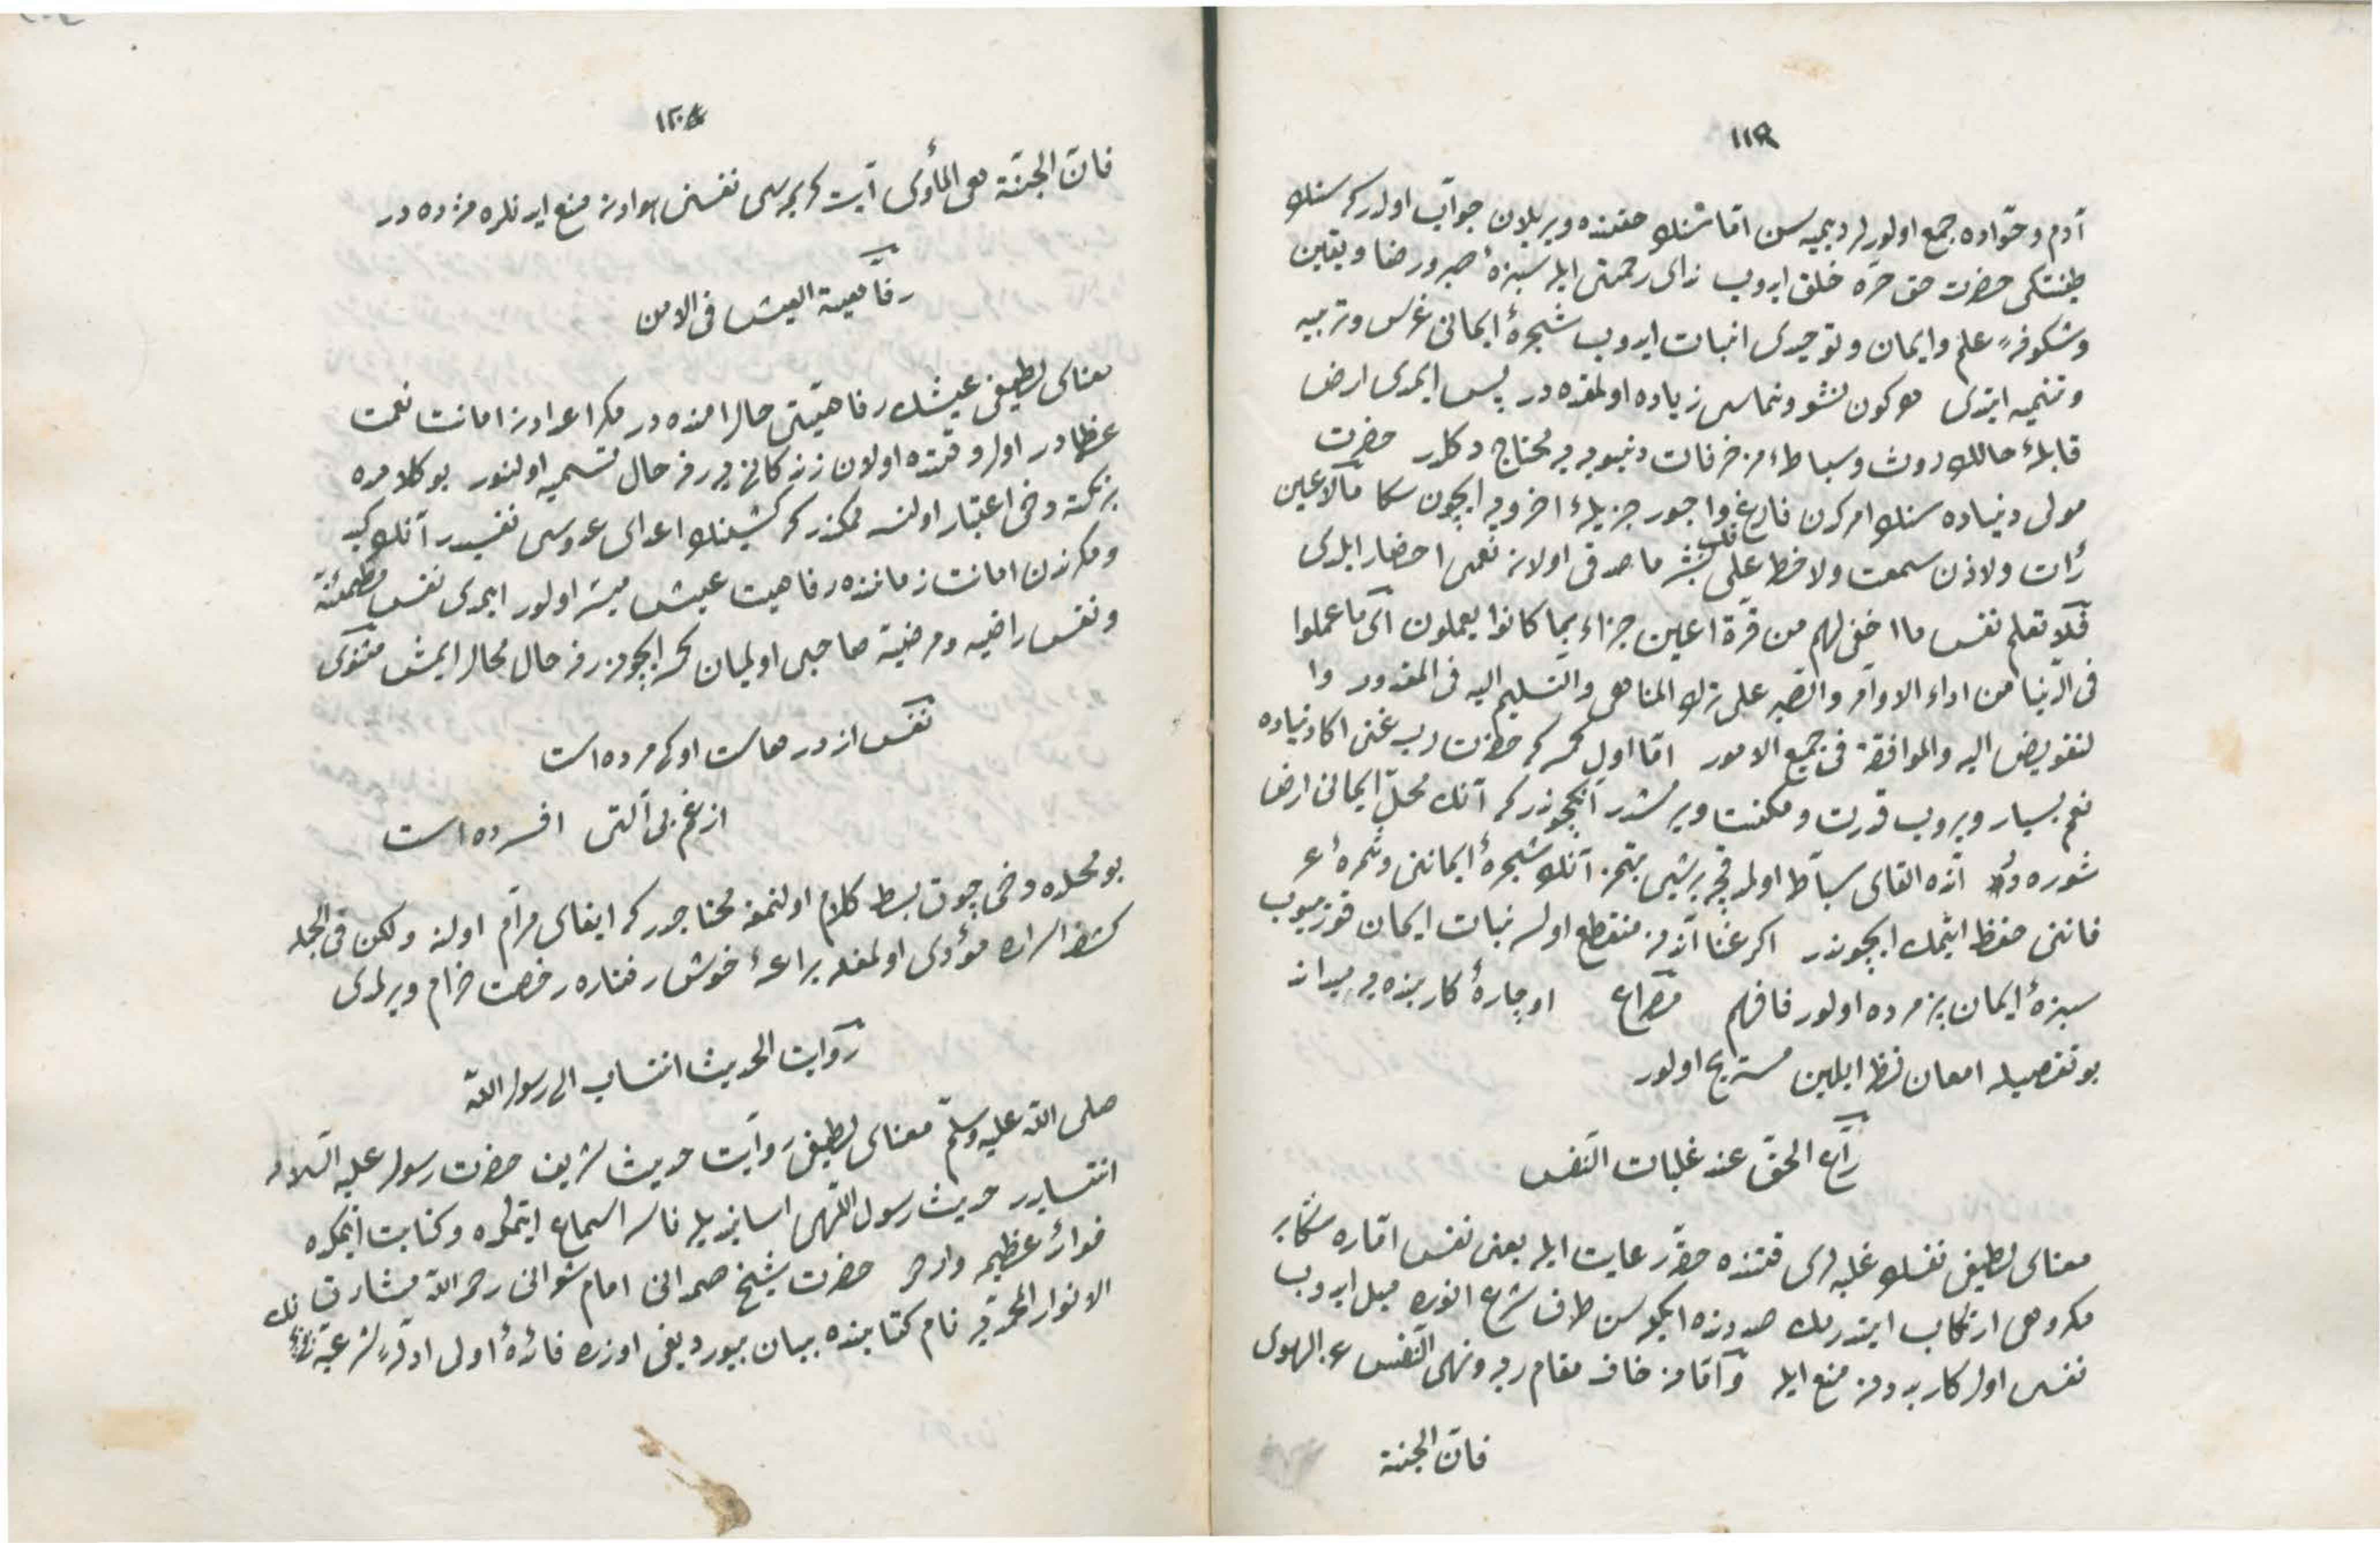 ١١٩
آدم و حوّاده جمع اولورلر ديميه سن امّا سنك حقنده ويريلان جواب اولدر كه سنك
طينتكى حضرت حق حرّه خلق ايدوب زلال رحمتى ايله سبزهٔ صبر و رضا و يقين
و شكوفهٔ علم و ايمان و توحيدى انبات ايدوب شجرهٔ ايمانى غرس و تربيه
و تنميه ايتدى هر كون نشو و نماسى زياده اولمقده در پس ايمدى ارض
قابلهٔ حالك روث و سباطهٔ مزخرفات دنيويه يه محتاج دكلدر حضرت
مولى دنياده سنك امركدن فارغ و اجور جزيلهٔ اخرويه ايچون سكا مالا عين
رأت ولا اذن سمعت ولا خطر على قلب بشر ما صدقى اولان نعمى احضار ايلدى
فلا تعلم نفس ما اخفى لهم من قرّة اعين جزاء بما كانوا يعملون اى ما عملوا
فى الدّنيا من اداء الاوامر والصّبر على ترك المناهى والتسليم اليه فى المقدور وا
لتفويض اليه والموافقة فى جميع الامور امّا اول كه حضرت رب غنى اكا دنياده
نعم بسيار ويروب قدرت و مكنت ويرمشدر آنكچوندر كه آنك محلّ ايمانى ارض
شوره در اكا القاى سباط اولمدقجه برشى بتمز آنك شجرهٔ ايماننى و ثمرهٔ عر
فاننى حفظ ايتمك ايچوندر اكر غنا آندن منقطع اولسه نبات ايمان قوريوب
سبزهٔ ايمان پژمرده اولور فافهم مصراع او چارهٔ كار بنده به ميداند
بو تفصيله امعان نظر ايلين مستريح اولور
راع الحقّ عند غلبات النّفس
معناى لطيفى نفسك غلبه لرى وقتنده حقّه رعايت ايله يعنى نفس امّاره سكا بر
مكروهى ارتكاب ايتدرمك صددنده ايكن سن طرف شرع انوره ميل ايدوب
نفسى اول كار بددن منع ايله و امّا من خاف مقام ربّه و نهى النّفس عن الهوى
فانّ الجنة
١٢٠
فانّ الجنّة هى المأوى آيت كريمه سى نفسنى هوادن منع ايدنلره مژده در
رفاهية العيش فى الامن
معناى لطيفى عيشك رفاهيّتى حال امنده در مكر اعدادن امانت نعمت
عظمادر اول وقتده اولان زندكانى يه رفه حال تسميه اولنور بو كلامده
بر نكته دخى اعتبار اولنسه ممكندر كه كشينك اعداى عدوسى نفسيدر آنك كيد
و مكرندن امانت زماننده رفاهيت عيش ميسّر اولور ايمدى نفس مطمئنّه
و نفس راضيه و مرضيّه صاحبى اولميان ايچون رفه حال محال ايمش مثنوى
نفس اژدرهاست او كى مرده است
از غم بى آلتى افسرده است
بو محلده دخى چوق بسط كلام اولنمغه محتاجدر كه ايفاى مرام اولنه ولكن فى الجمله
كشف اسراره مؤدى اولمغله يراعهٔ خوش رفتاره رخصت خرام ويرلمدى
روايت الحديث انتساب الى رسول اللّه
صلى اللّه عليه وسلّم معناى لطيفى روايت حديث شريف حضرت رسول عليه السّلامه
انتسابدر حديث رسول اللّهى اسانيديله ناسه اسماع ايتمكده و كتابت ايتمكده
فوائد عظيمه واردر حضرت شيخ صمدانى امام شعرانى رحمه اللّه مشارق
الانوار المحمّديه نام كتابنده بيان بيورديغى اوزره فائدهٔ اولى ادلّهٔ شرعيّه نك